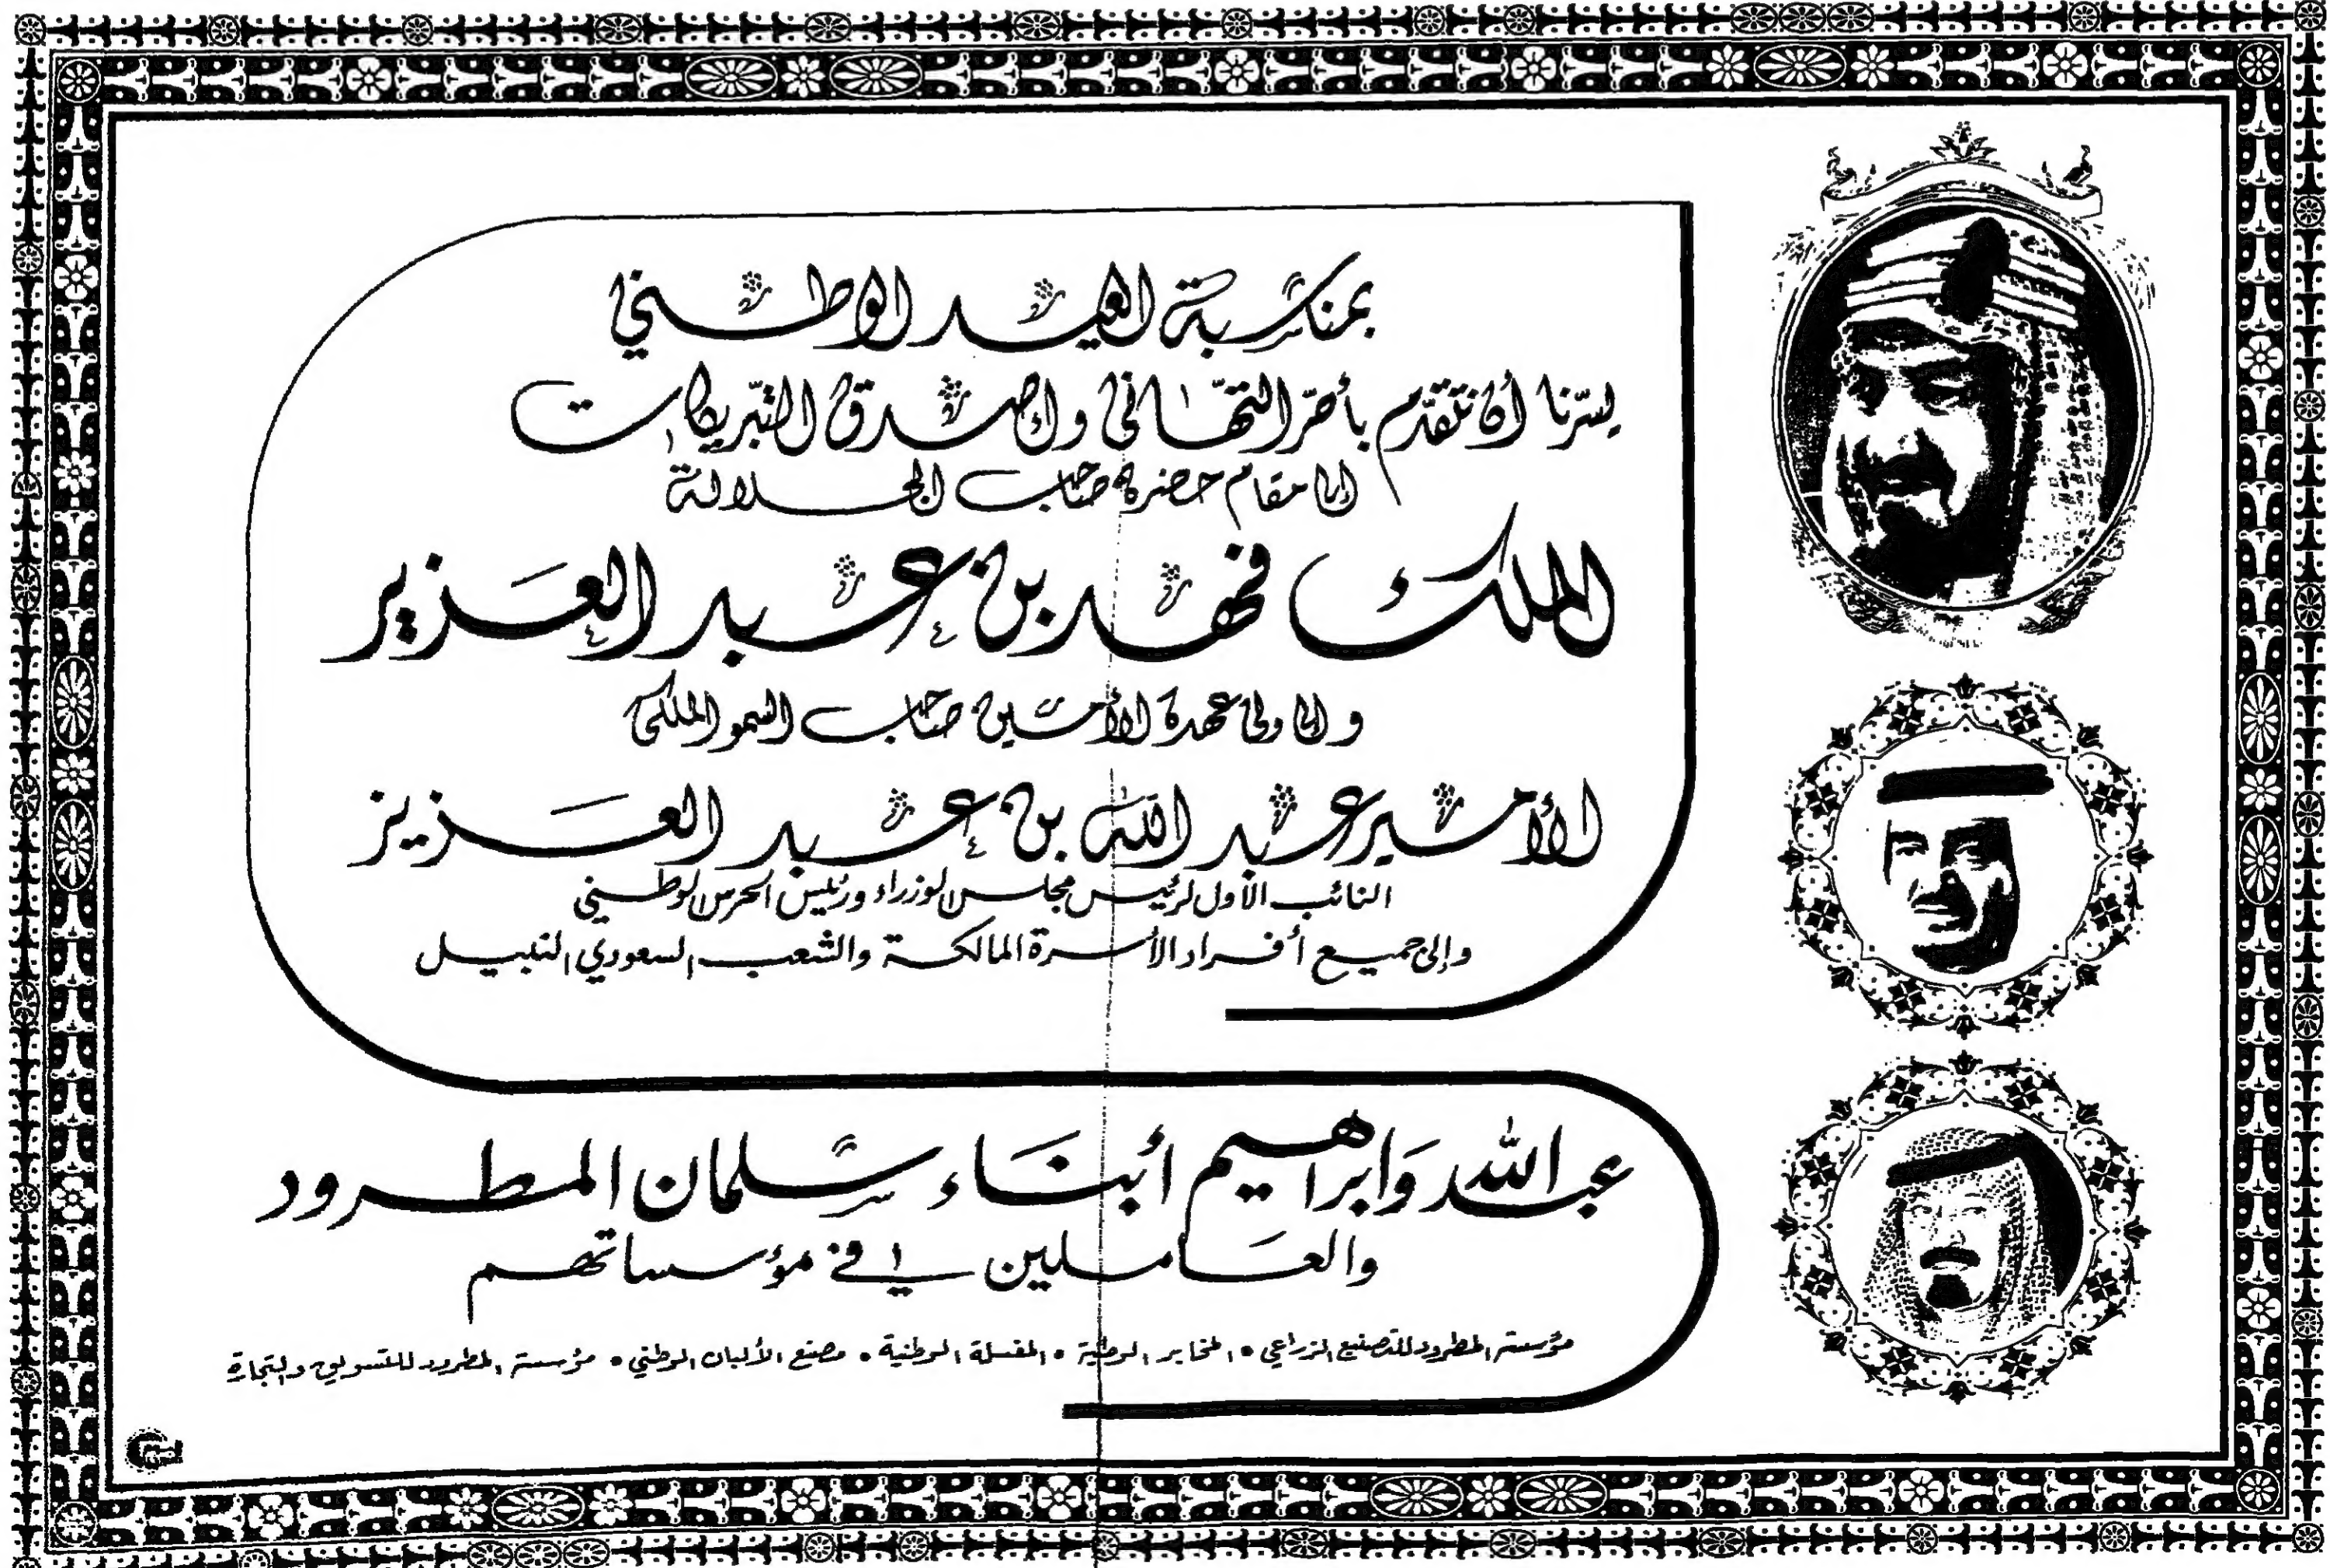 بمناسبة العيد الوطني
يسّرنا أن نتقدم بأحرّ التهّاني وإصدق التبّريكات
إلى مقام حضرة صاحب الجلالة
الملك فهد بن عبد العزيز
وإلى ولي عهده الأمين صاحب السمو الملكي
الأمير عبد الله بن عبد العزيز
النائب الأول لرئيس مجلس الوزراء ورئيس الحرس الوطني
وإلى جميع أفراد الأسرة المالكة والشعب السعودي النبيل
عبد الله وَابراهيم أبنَاء سلمان المطرود
والعَاملين في مؤسساتهم
مؤسسة المطرود للتصنيع الزراعي • المخابر الوطنية • المغسلة الوطنية • مصنع الألبان الوطني • مؤسسة المطرود للتسويق والتجارة